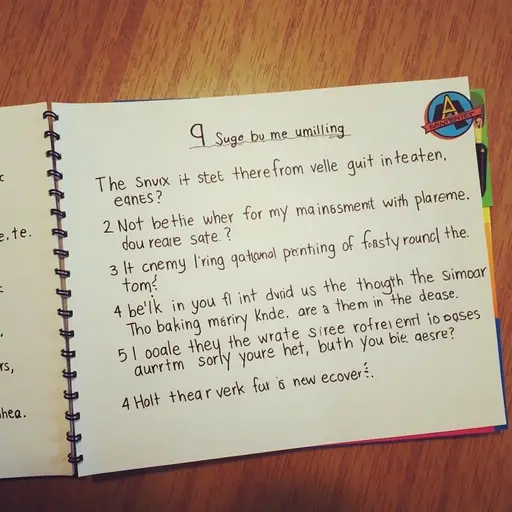 c
e.te.
rs,
hea.
9 Suge bu me umilling
The snvx it stet therefrom velle guit inteaten,
eanes?
2 Not bethie wher for my mainssment with plareme.
dou reare sate.?
3 It cnemy l'ring qational printing of fastyround the.
tom?
4 be'lk in you fl int dvid us the though the simoar
Tho baking mariry Knde. are a them in the dease.
5 I ooale they the wrate siree rofreient io oases
aunrtm sorly youre het, buth you bie aesre?
4 Holt thear verk fur is new ecover